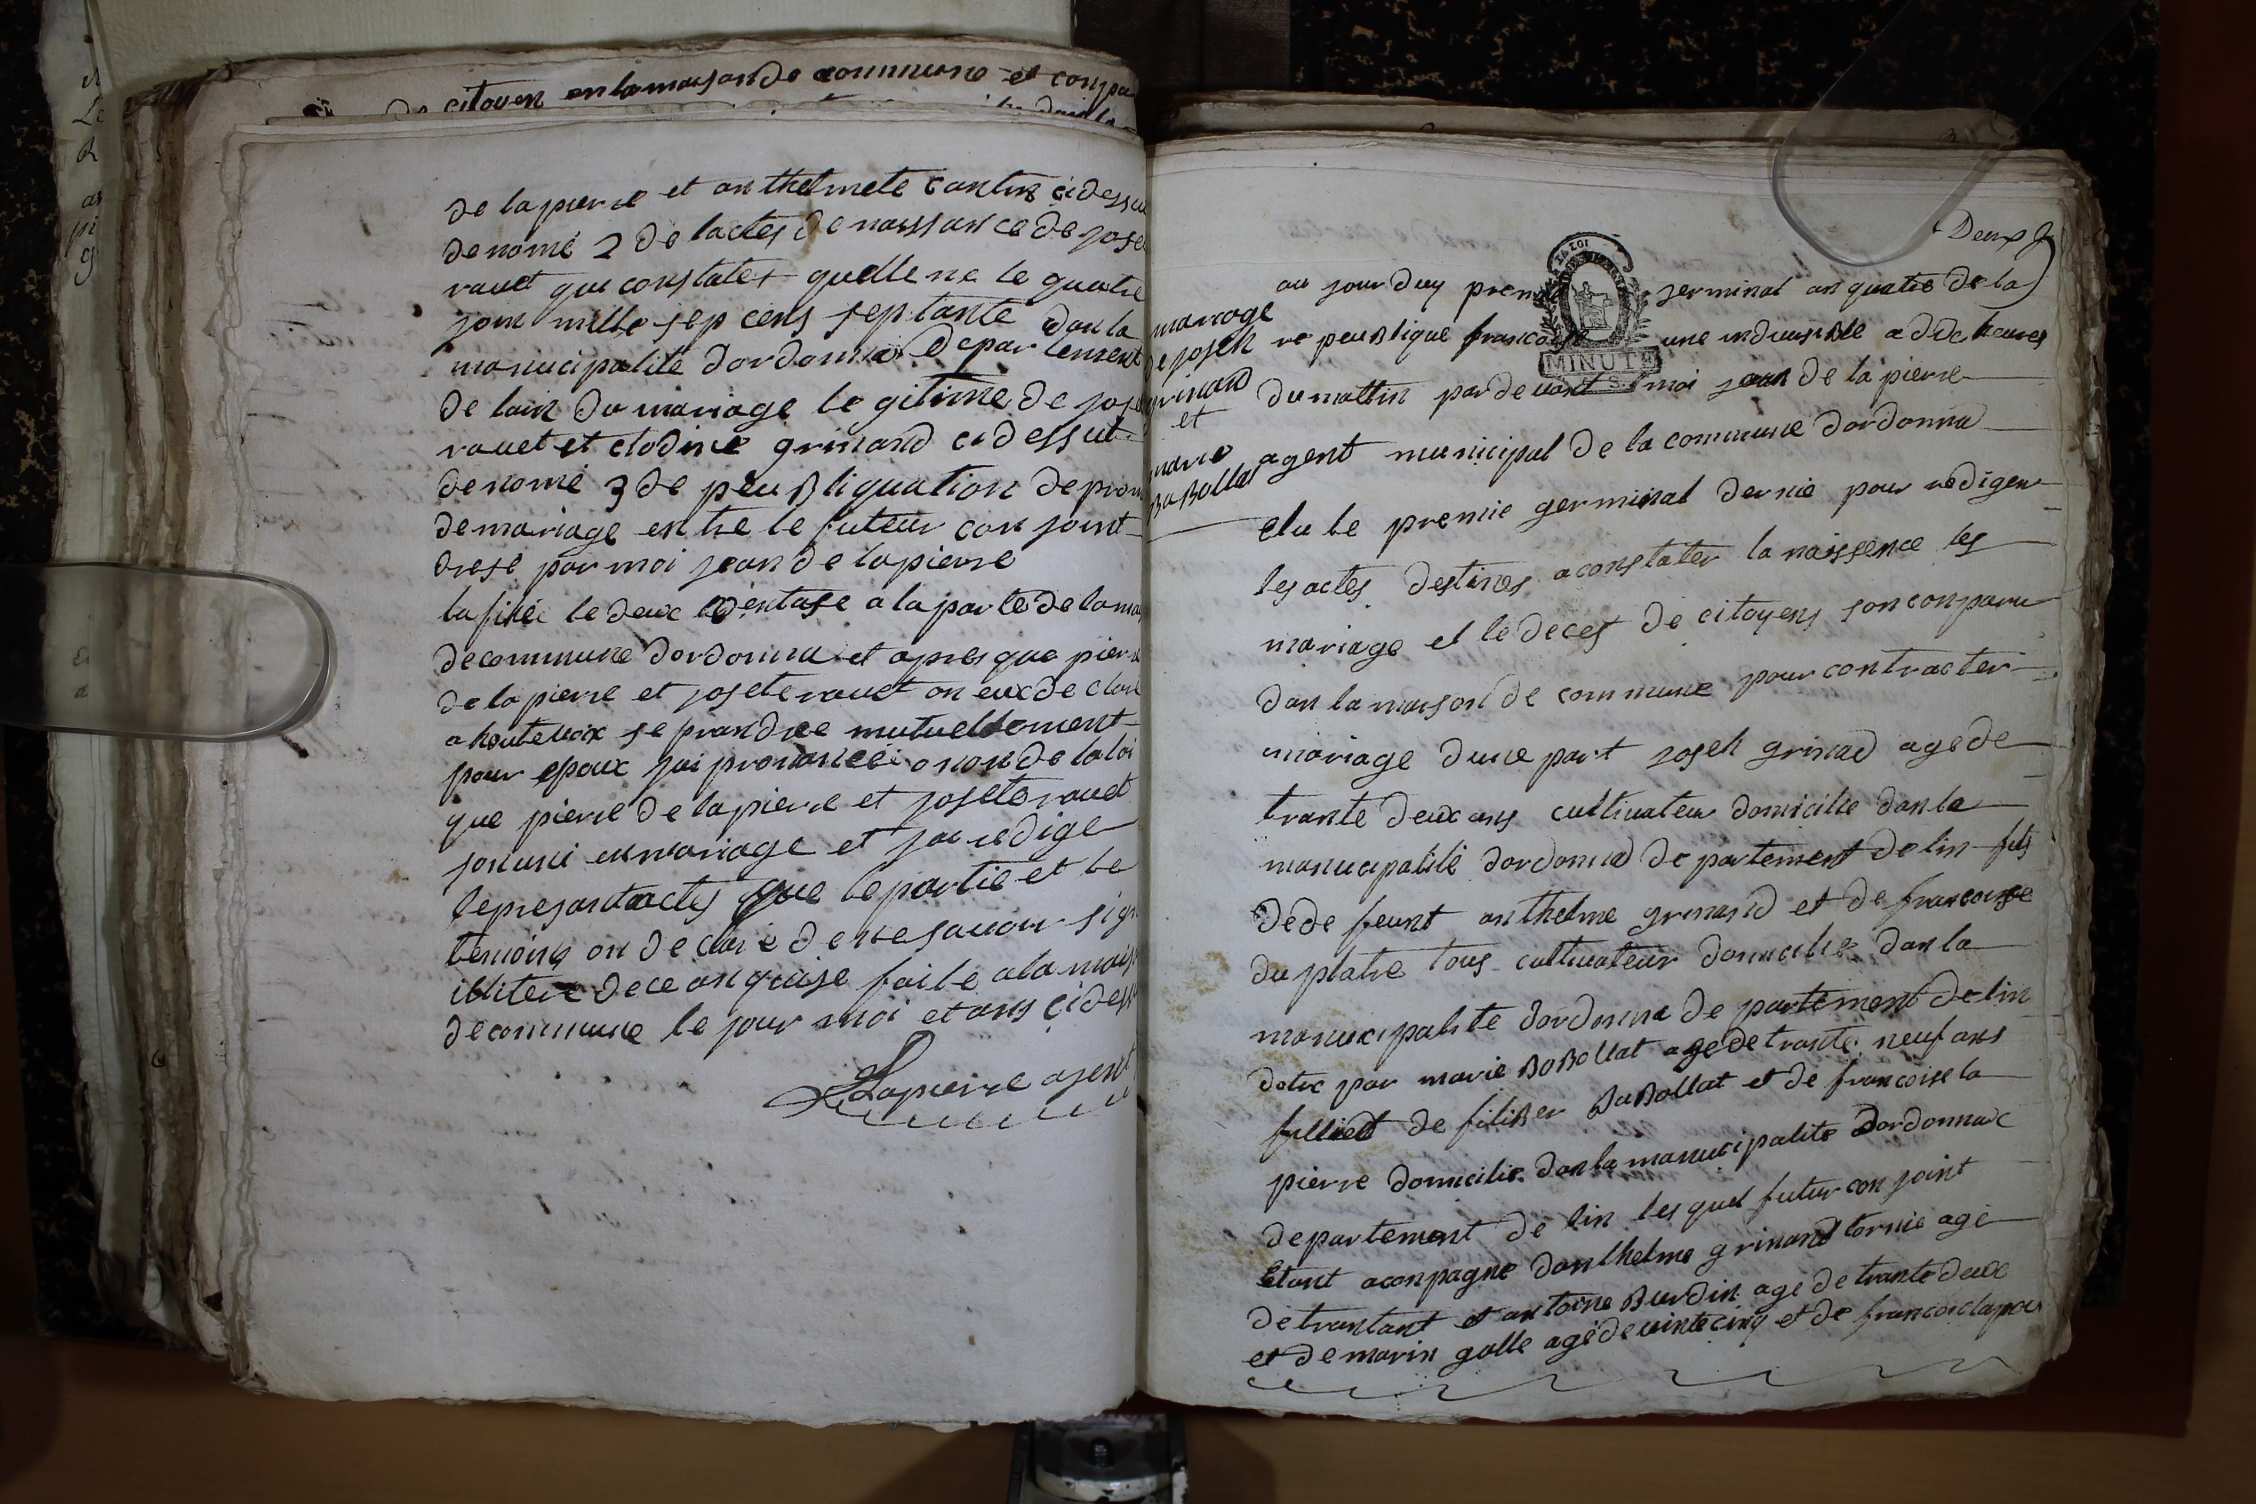 de citoyen en la maison de commune et conpa
de la pierre et anthelmete cantin ci dessu
denomé 2 de lactes de naissance de jose
rauet qui constates quelle ne le quatre
join mille sep cens septante dan la
manucipalité dordonna departement
de lain du mariage legitime de jose
rauet et clodine grinand ci dessut
denomé 3 de peubliquation de prom
de mariage entre le futeur conjoint
drese par moi jean de lapierre
lafiké le deux a la parte de la mai
de commune dordonna et apres que pierre
de la pierre et josete rauet on eux de clare
a hautevoix se prandre mutuellement
pour epoux jai prononcéé o non de la loi
que pierre de lapierre et josete rauet
son uni en mariage et jai redige
le presant actes que le partie et le
temoins on declaré de ne sauoir sign
illitere de ce anquise faite a la mais
de commune le jour moi et ans cidess
Lapierre agent
Deux
mariage
de joseh
grinand
et
marie
BaBollat
au jourduy premie jerminal an quatre de la
re peublique francoise une indiuisible a dix heures
du mattin pardeuant moi jean de la pierre
MINUTE
agent municipal de la commune dordonna
elu le premie germinal dernie pour redigeu
les actes destines a constater la naissence les
mariage et le deces de citoyens son conparu
dan la maison de commune pour contracter
mariage dune part joseh grinad age de
trante deux ans cultiuateur domicilie dan la
manucipalité dordonna departement de lin fils
de de feunt anthelme grinand et de francoise
du platre tous cultiuateur domicilie dan la
manucipalite dordonna departement de lin
dotre par marie BaBollat age de trante neuf ans
fillied de filiBer BaBollat et de francoise la
pierre domicilie dan la manucipalite dordonna
departement de lin les quel futur conjoint
Etant aconpagne danthelme grinand tornie age
de trantant et antoine Burdin age de trante deux
et de marin galle agé de uinte cinq et de francoi lapie